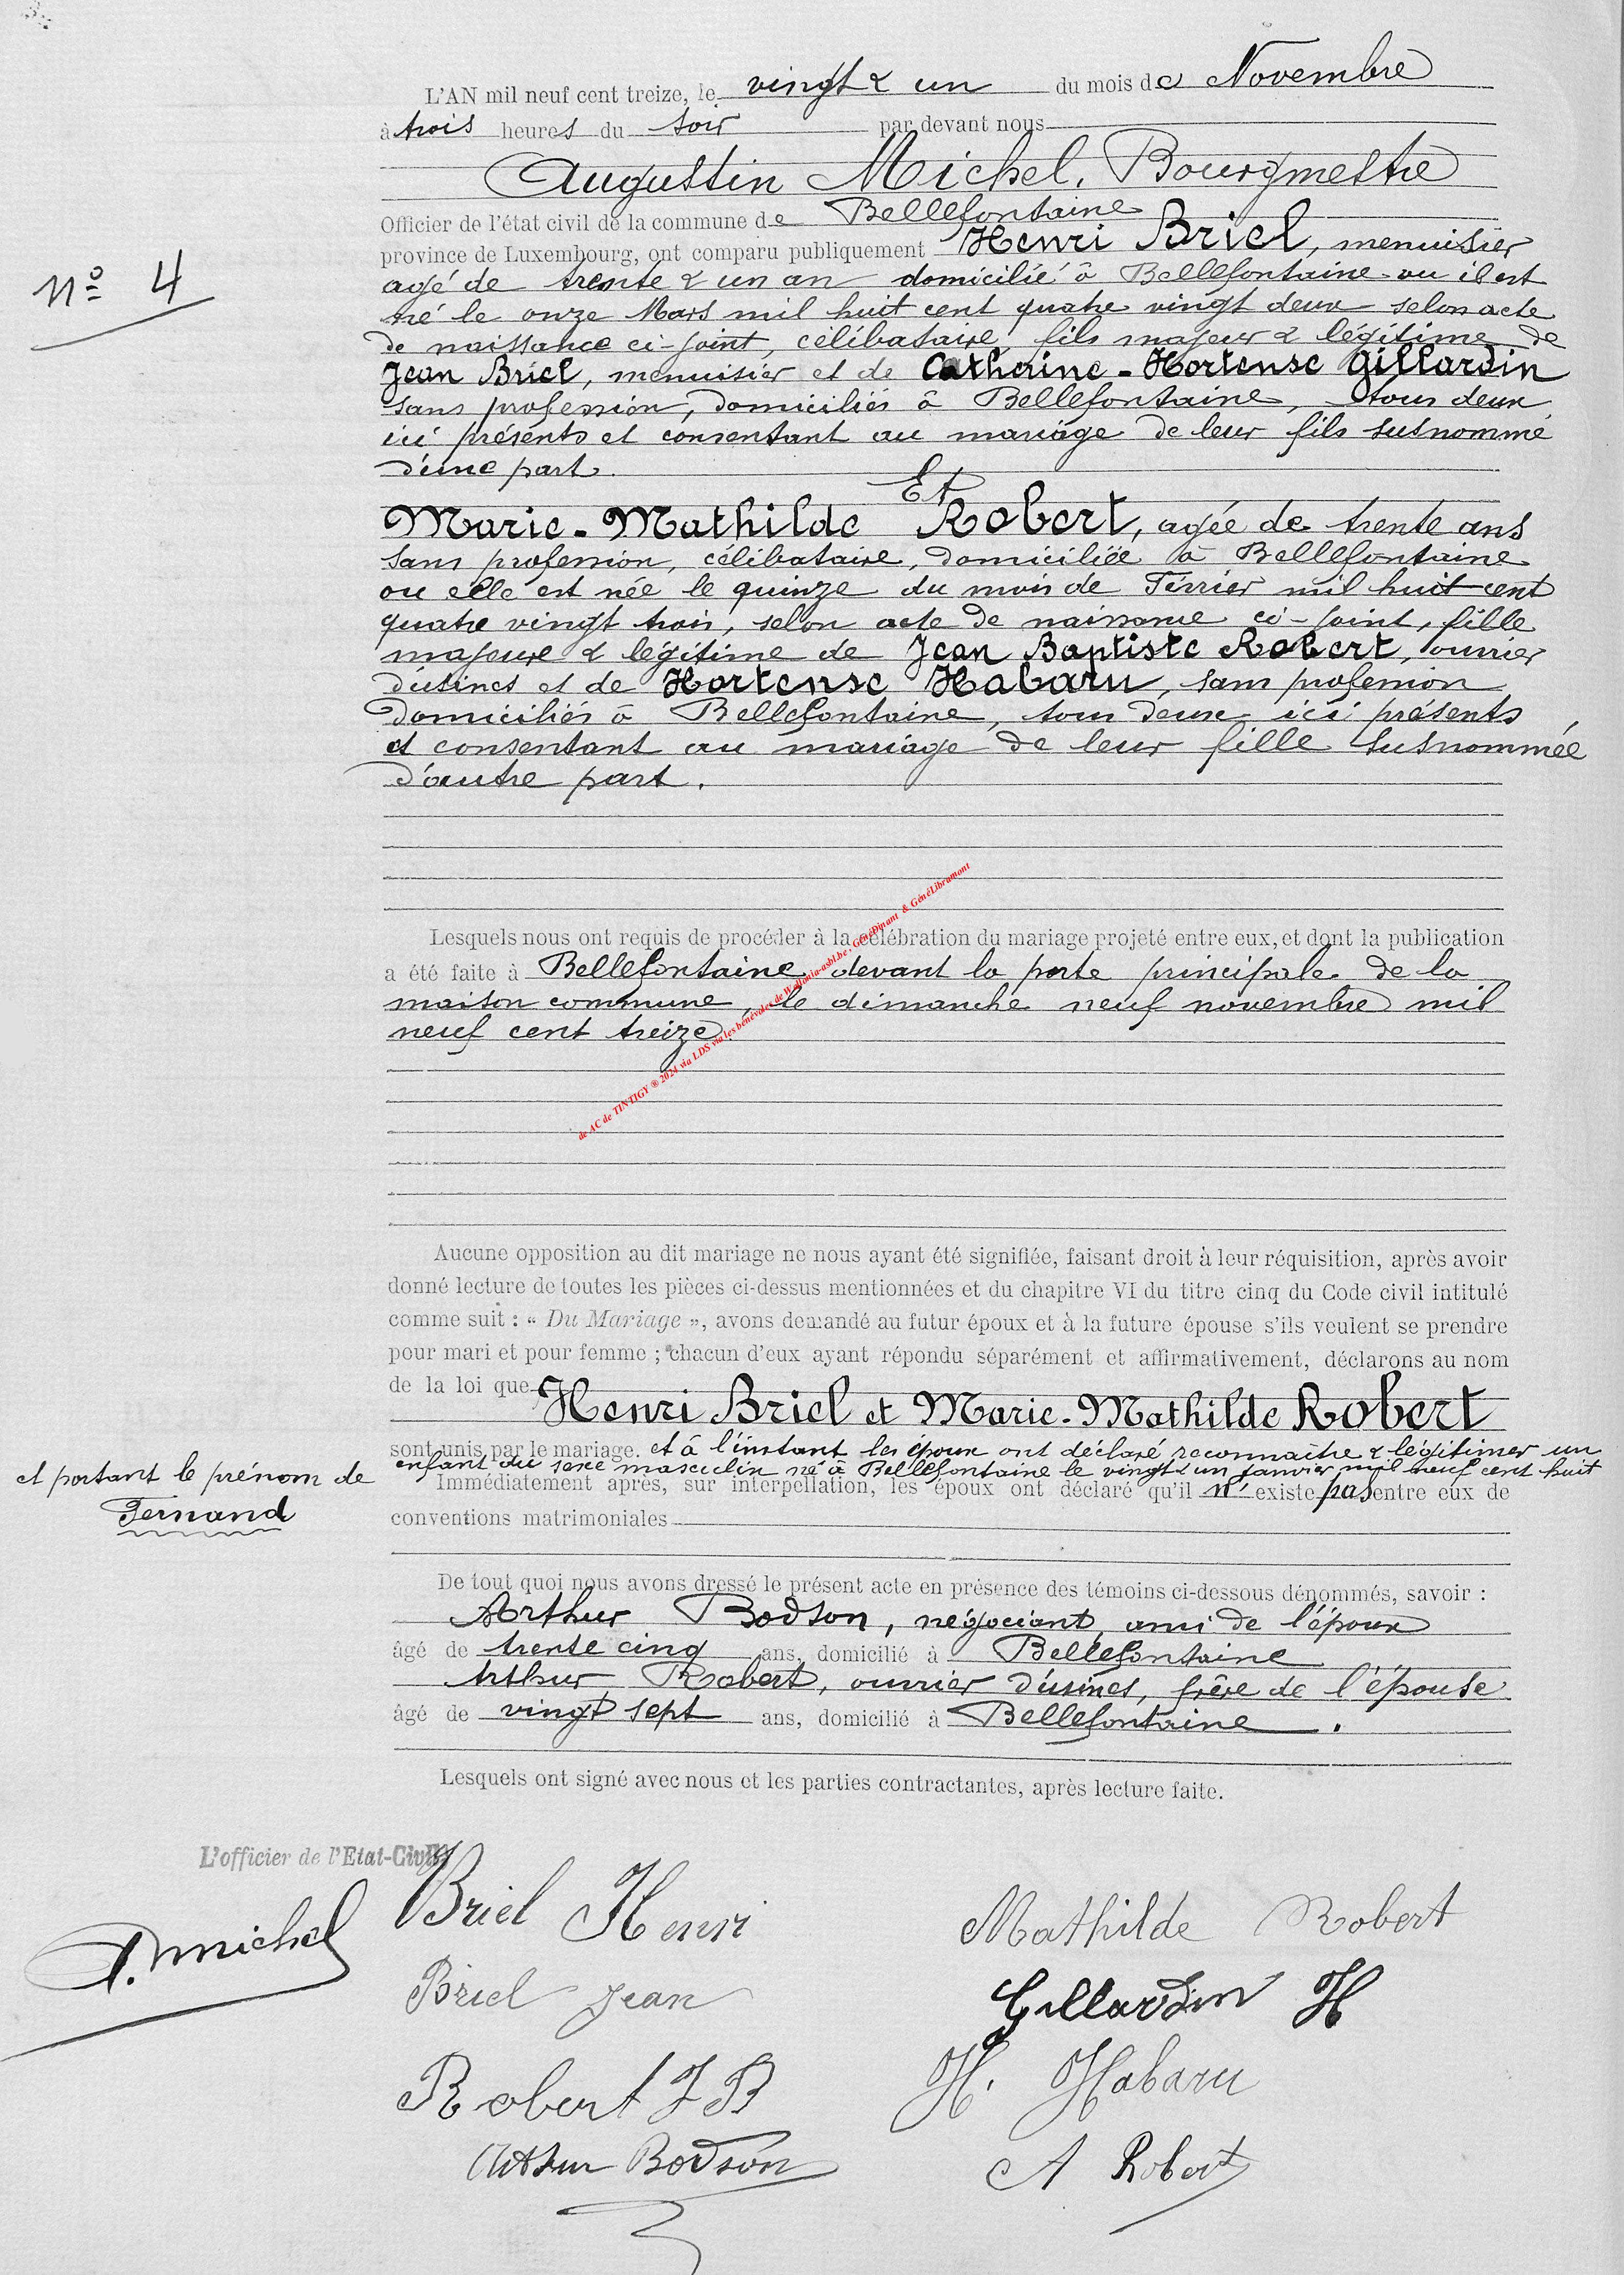 L'AN mil neuf cent treize, le vingt & un du mois de Novembre
à trois heures du soir par devant nous
Augustin Michel, Bourgmestre
Officier de l'état civil de la commune de Bellefontaine
province de Luxembourg, ont comparu publiquement Henri Briel, menuisier
N° 4
agé de trente & un an domicilié à Bellefontaine ou il est
né le onze Mars mil huit cent quatre vingt deux selon acte
de naissance ci-joint, célibataire, fils majeur & légitime de
Jean Briel, menuisier et de Catherine-Hortense Gillardin
sans profession, domiciliés à Bellefontaine, tous deux
ici présents et consentant au mariage de leur fils susnommé
d'une part.
Et
Marie-Mathilde Robert, agée de trente ans
sans profession, célibataire, domiciliée à Bellefontaine
ou elle est née le quinze du mois de Février mil huit cent
quatre vingt trois, selon acte de naissance ci-joint, fille
majeure & légitime de Jean Baptiste Robert, ouvrier
d'usines et de Hortense Habaru, sans profession
domiciliés à Bellefontaine, tous deux ici présents
et consentant au mariage de leur fille susnommée
d'autre part.
Lesquels nous ont requis de procéder à la célébration du mariage projeté entre eux, et dont la publication
a été faite à Bellefontaine devant la porte principale de la
maison commune, le dimanche neuf novembre mil
neuf cent treize.
de AC de TINTIGY ® 2024 via LDS via les bénévoles de Wallonia-asbl.be, GénéDinant & GénéLibramont
Aucune opposition au dit mariage ne nous ayant été signifiée, faisant droit à leur réquisition, après avoir
donné lecture de toutes les pièces ci-dessus mentionnées et du chapitre VI du titre cinq du Code civil intitulé
comme suit : « Du Mariage », avons demandé au futur époux et à la future épouse s'ils veulent se prendre
pour mari et pour femme ; chacun d'eux ayant répondu séparément et affirmativement, déclarons au nom
de la loi que
Henri Briel et Marie-Mathilde Robert
sont unis par le mariage. et à l'instant les époux ont déclaré reconnaitre & légitimer un
enfant du sexe masculin né à Bellefontaine le vingt & un janvier mil neuf cent huit
et portant le prénom de
Fernand
Immédiatement après, sur interpellation, les époux ont déclaré qu'il n'existe pas entre eux de
conventions matrimoniales
De tout quoi nous avons dressé le présent acte en présence des témoins ci-dessous dénommés, savoir :
Arthur Bodson, négociant, ami de l'époux
âgé de trente cinq ans, domicilié à Bellefontaine
Arthur Robert, ouvrier d'usines, frère de l'épouse
âgé de vingt sept ans, domicilié à Bellefontaine.
Lesquels ont signé avec nous et les parties contractantes, après lecture faite.
L'officier de l'Etat-Civil,
A. Michel
Briel Henri
Mathilde Robert
Briel Jean
Gillardin H
Robert J B
H. Habaru
Arthur Bodson
A Robert